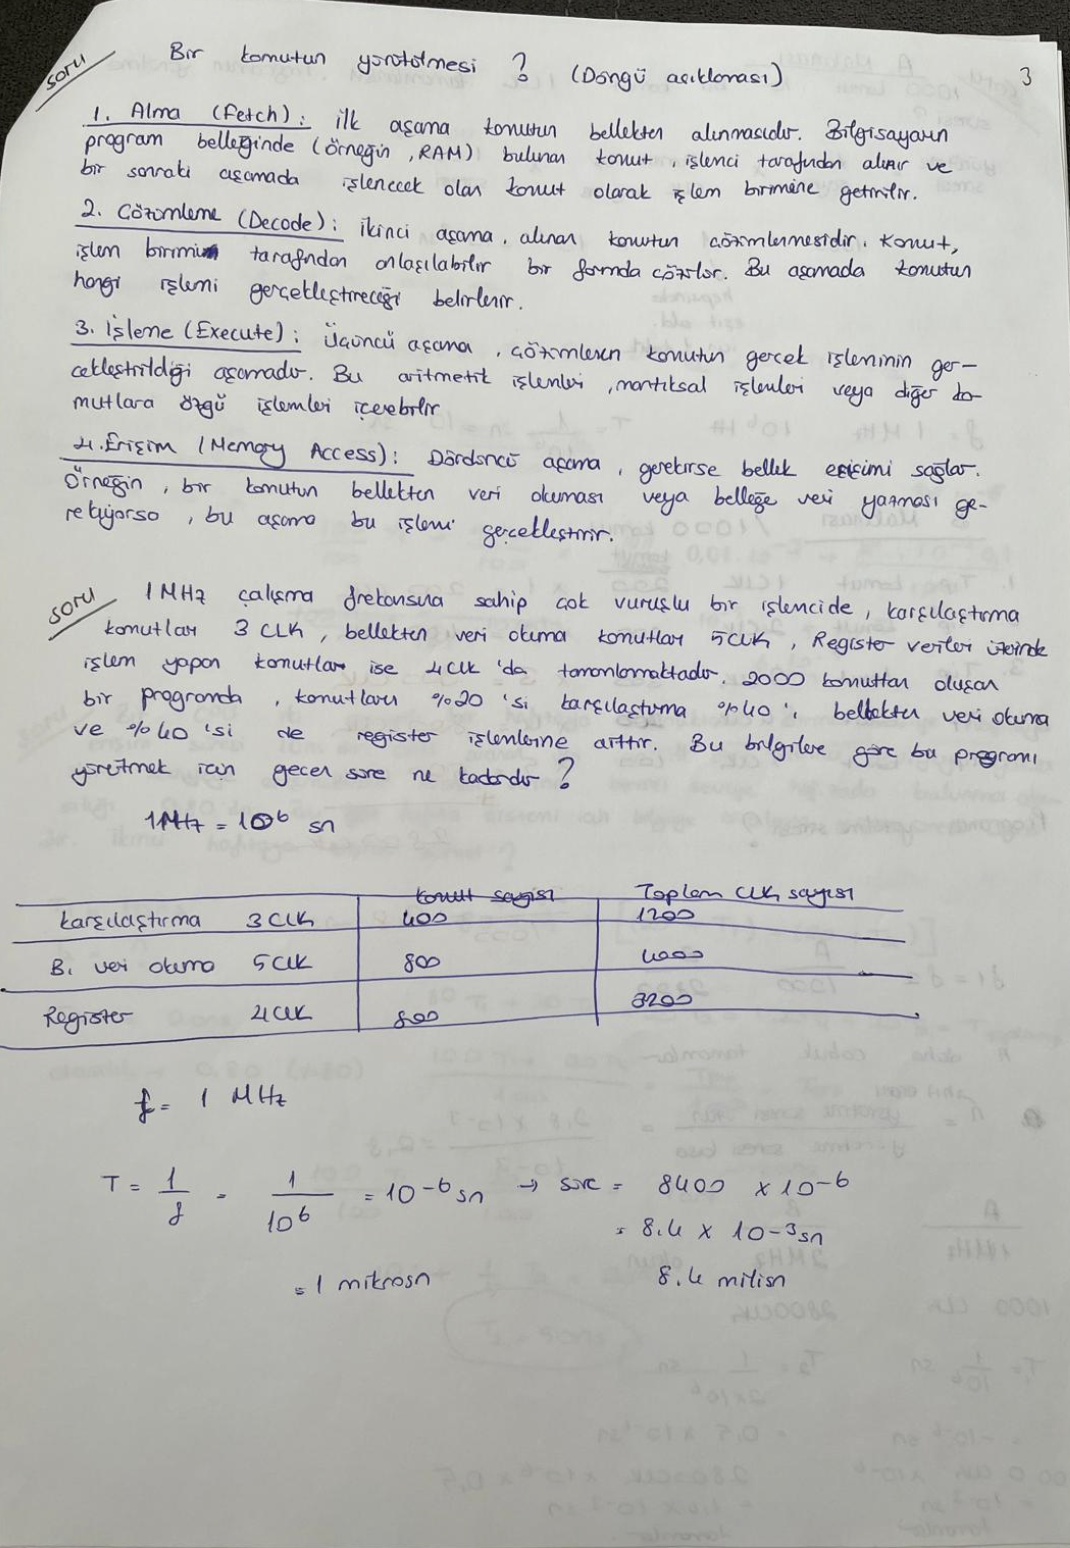 soru Bir komutun yürütülmesi ? (Döngü açıklaması) 3
1. Alma (Fetch) : ilk aşama komutun bellekten alınmasıdır. Bilgisayarın
program belleğinde (örneğin, RAM) bulunan komut, işlenci tarafından alınır ve
bir sonraki aşamada işlenecek olan komut olarak işlem birimine getirilir.
2. Çözümleme (Decode) : ikinci aşama, alınan komutun çözümlenmesidir. Komut,
işlem birimin tarafından anlaşılabilir bir formda çözülür. Bu aşamada komutun
hangi işlemi gerçekleştireceği belirlenir.
3. İşleme (Execute) : Üçüncü aşama, çözümlenen komutun gerçek işleminin ger-
çekleştrildiği aşamadır. Bu aritmetik işlemleri, mantıksal işlemleri veya diğer ko-
mutlara özgü işlemleri içerebilir
4. Erişim (Memory Access) : Dördüncü aşama, gerekirse bellek erişimi sağlar.
Örneğin, bir komutun bellekten veri okuması veya belleğe veri yazması ge-
rekiyorsa, bu aşama bu işlemi gerçekleştirir.
soru 1 MHz çalışma frekansına sahip çok vuruşlu bir işlencide, karşılaştırma
komutları 3 CLK, bellekten veri okuma komutları 5CLK, Register verileri üzerinde
işlem yapan komutlar ise 4CLK 'da tamamlamaktadır. 2000 komuttan oluşan
bir programda, komutların %20 'si karşılaştırma %40 'ı bellekten veri okuma
ve %40 'si de register işlemlerine aittir. Bu bilgilere göre bu programı
yürütmek için geçen süre ne kadardır ?
1MHz = 10⁶ sn
komut sayısı Toplam CLK sayısı
karşılaştırma 3CLK 400 1200
B. veri okuma 5CLK 800 4000
Register 4CLK 800 3200
f = 1 MHz
T = 1/f = 1/10⁶ = 10⁻⁶ sn → süre = 8400 x 10⁻⁶
= 8.4 x 10⁻³ sn
= 1 mikrosn 8.4 milisn